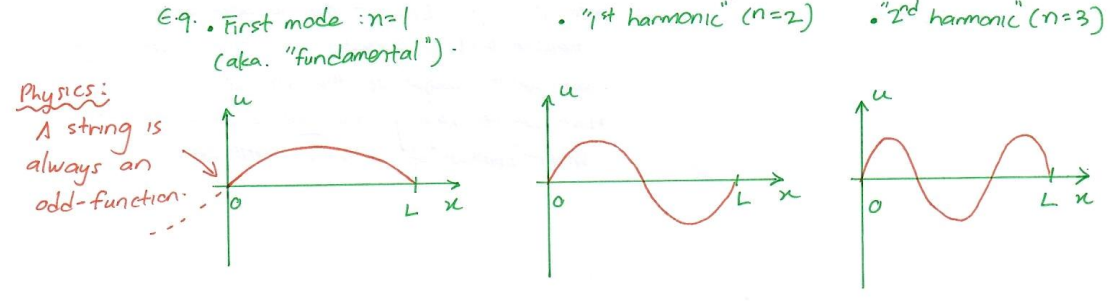 E.g. • First mode : n=1
(aka. "fundamental").
• "1st harmonic" (n=2)
• "2nd harmonic" (n=3)
Physics:
A string is
always an
odd-function.
u
O
L
x
u
O
L
x
u
O
L
x